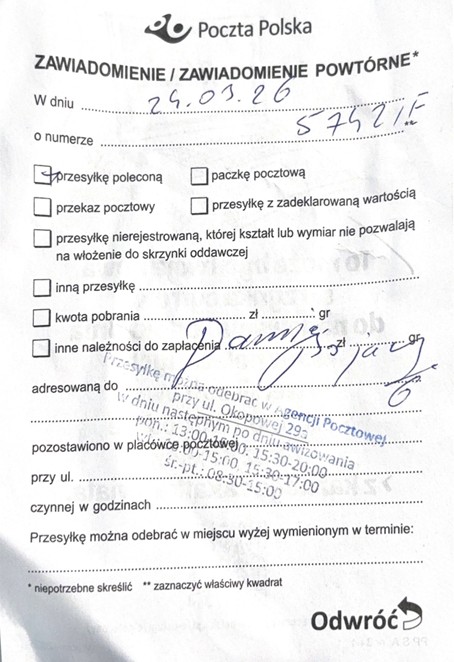 Poczta Polska
ZAWIADOMIENIE / ZAWIADOMIENIE POWTÓRNE*
W dniu 24.03.26
o numerze 57421/F **
przesyłkę poleconą paczkę pocztową
przekaz pocztowy przesyłkę z zadeklarowaną wartością
przesyłkę nierejestrowaną, której kształt lub wymiar nie pozwalają
na włożenie do skrzynki oddawczej
inną przesyłkę
kwota pobrania zł gr
inne należności do zapłacenia zł gr
adresowaną do 6
Przesyłkę można odebrać w Agencji Pocztowej
przy ul. Okopowej 29a
w dniu następnym po dniu awizowania
pon.: 13:00 15:30-20:00
pozostawiono w placówce pocztowej
:00-15:00, 15:30-17:00
śr.-pt.: 08:30-15:00
przy ul.
czynnej w godzinach
Przesyłkę można odebrać w miejscu wyżej wymienionym w terminie:
* niepotrzebne skreślić ** zaznaczyć właściwy kwadrat
Odwróć